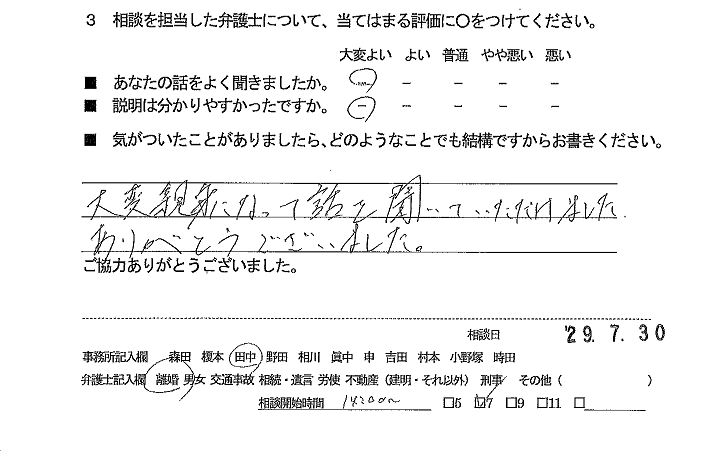 3 相談を担当した弁護士について、当てはまる評価に〇をつけてください。
大変よい よい 普通 やや悪い 悪い
■ あなたの話をよく聞きましたか。 － － － － －
■ 説明は分かりやすかったですか。 － － － － －
■ 気がついたことがありましたら、どのようなことでも結構ですからお書きください。
大変親身になって話を聞いていただけました
ありがとうございました。
ご協力ありがとうございました。
相談日 '29. 7. 30
事務所記入欄 森田 榎本 田中 野田 相川 眞中 申 吉田 村本 小野塚 時田
弁護士記入欄 離婚 男女 交通事故 相続・遺言 労使 不動産（建明・それ以外） 刑事 その他（ ）
相談開始時間 □5 ☑7 □9 □11 □